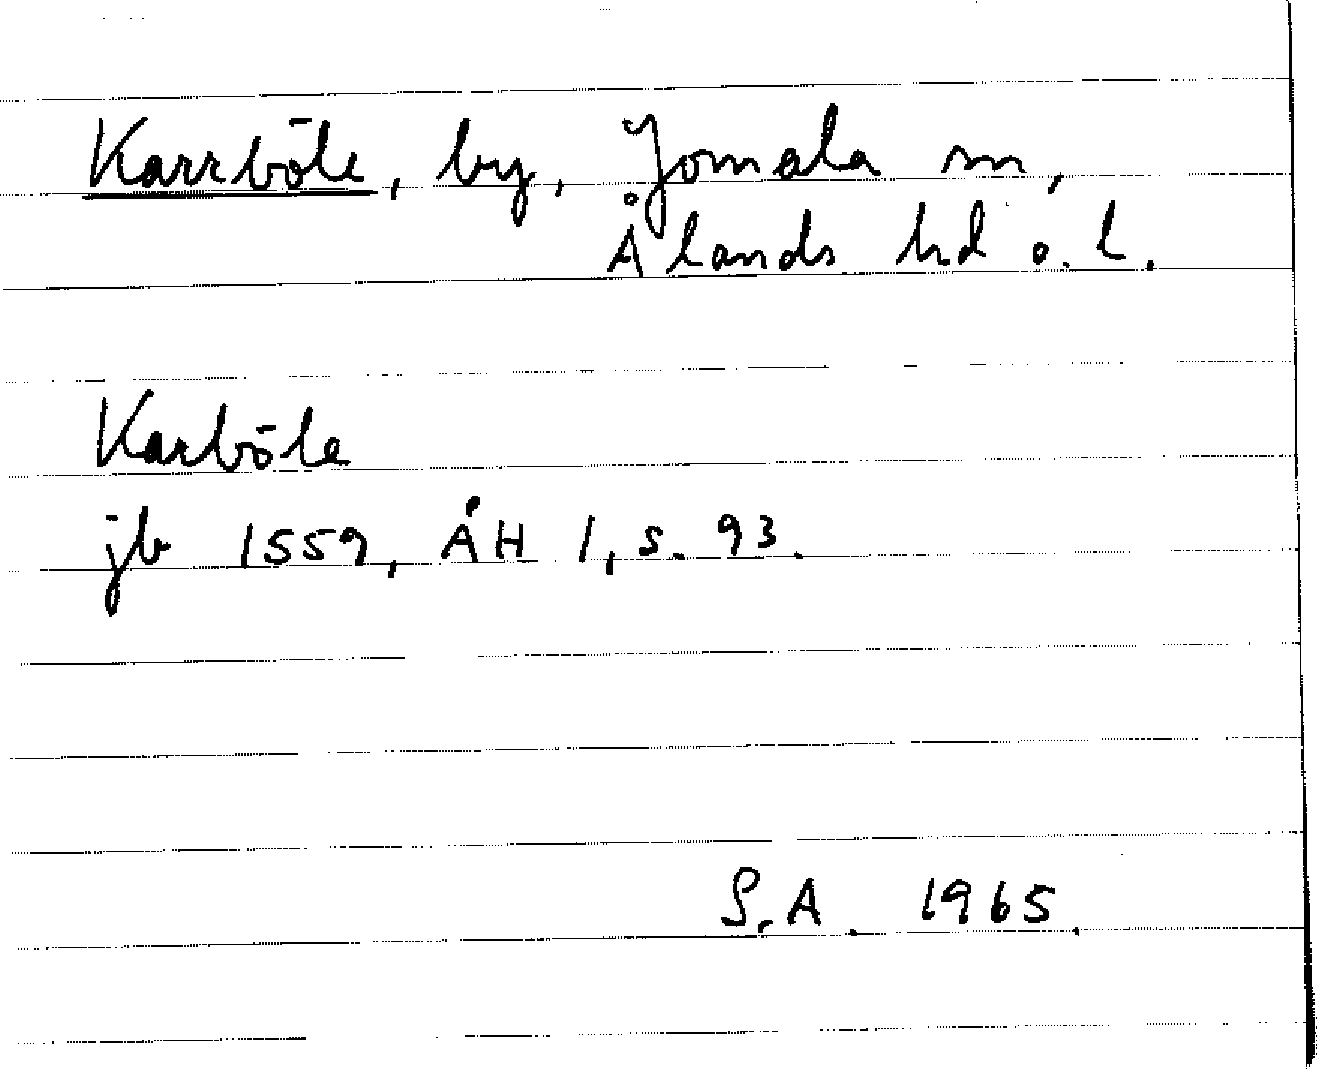 Karrböle, by, Jomala sn,
Ålands hd o. l.
Karböle
jb 1559, ÅH 1, s. 93.
S.A. 1965.